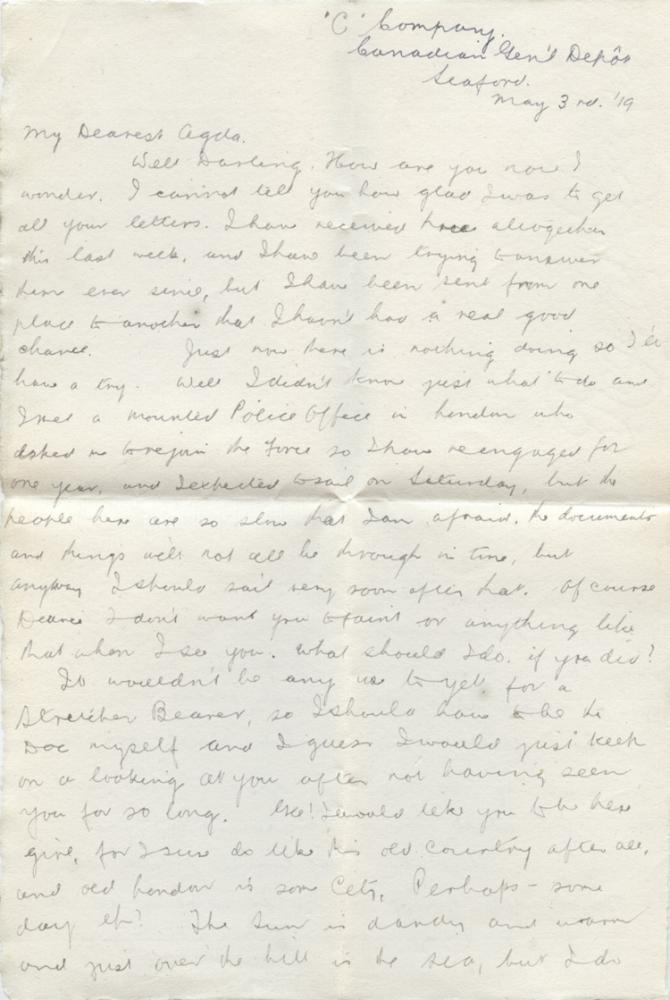 'C' Company.
Canadian Gen'l Depôt
Seaford.
May 3rd. '19
My Dearest Agda.
Well Darling. How are you now I
wonder. I cannot tell you how glad I was to get
all your letters. I have received three altogether
this last week, and I have been trying to answer
them ever since, but I have been sent from one
place to another that I havn't had a real good
chance. Just now there is nothing doing so I'll
have a try. Well I didn't know just what to do and
I met a Mounted Police Office in London who
asked me to rejoin the Force so I have reengaged for
one year, and I expected to sail on Saturday, but the
people here are so slow that I am afraid. the documents
and things will not all be through in time, but
anyway I should sail very soon after that. Of course
Dearie I don't want you to faint or anything like
that when I see you. What should I do. if you did?
It wouldn't be any use to yell for a
Stretcher Bearer, so I should have to be the
Doc myself and I guess I would just keep
on a looking at you after not having seen
you for so long. Gee! I would like you to be here
girlie, for I sure do like this old Country after all,
and old London is some City, Perhaps - some
day eh? The sun is dandy and warm
and just over the hill is the sea, but I do